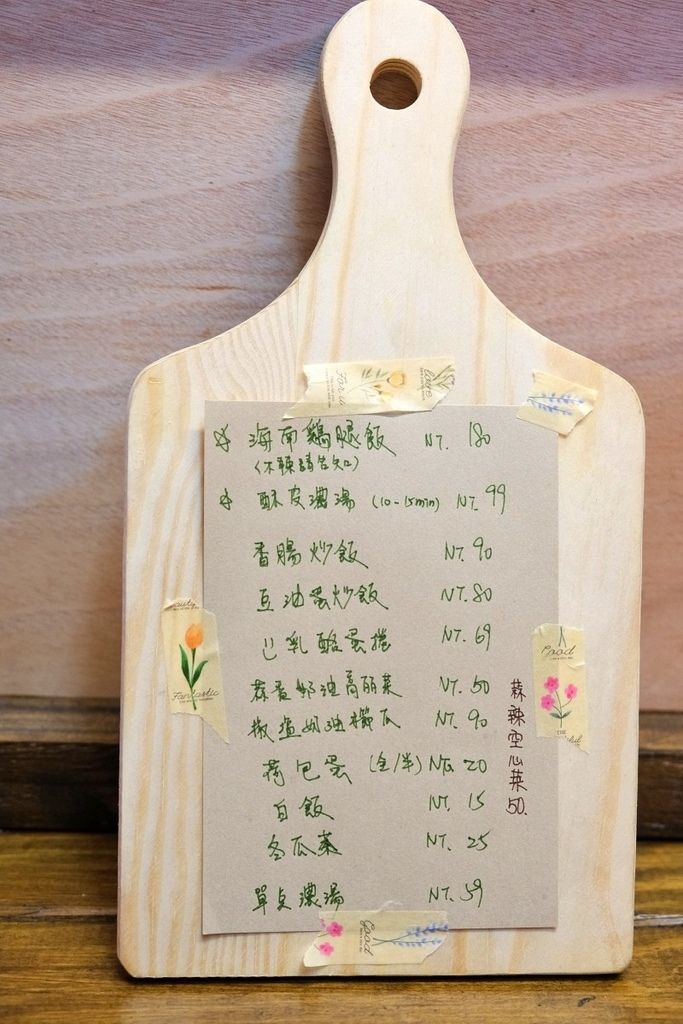 ☆ 海南鷄腿飯 NT. 180
(不辣請告知)
☆ 酥皮濃湯 (10-15min) NT. 99
香腸炒飯 NT. 90
豆油蛋炒飯 NT. 80
乳酪蛋捲 NT. 69
奶油高丽菜 NT. 50
椒塩奶油櫛瓜 NT. 90
荷包蛋 (全/半) NT. 20
白飯 NT. 15
冬瓜茶 NT. 25
單点濃湯 NT. 59
蒜辣空心菜 50.
love
Fantastic
Good
Good